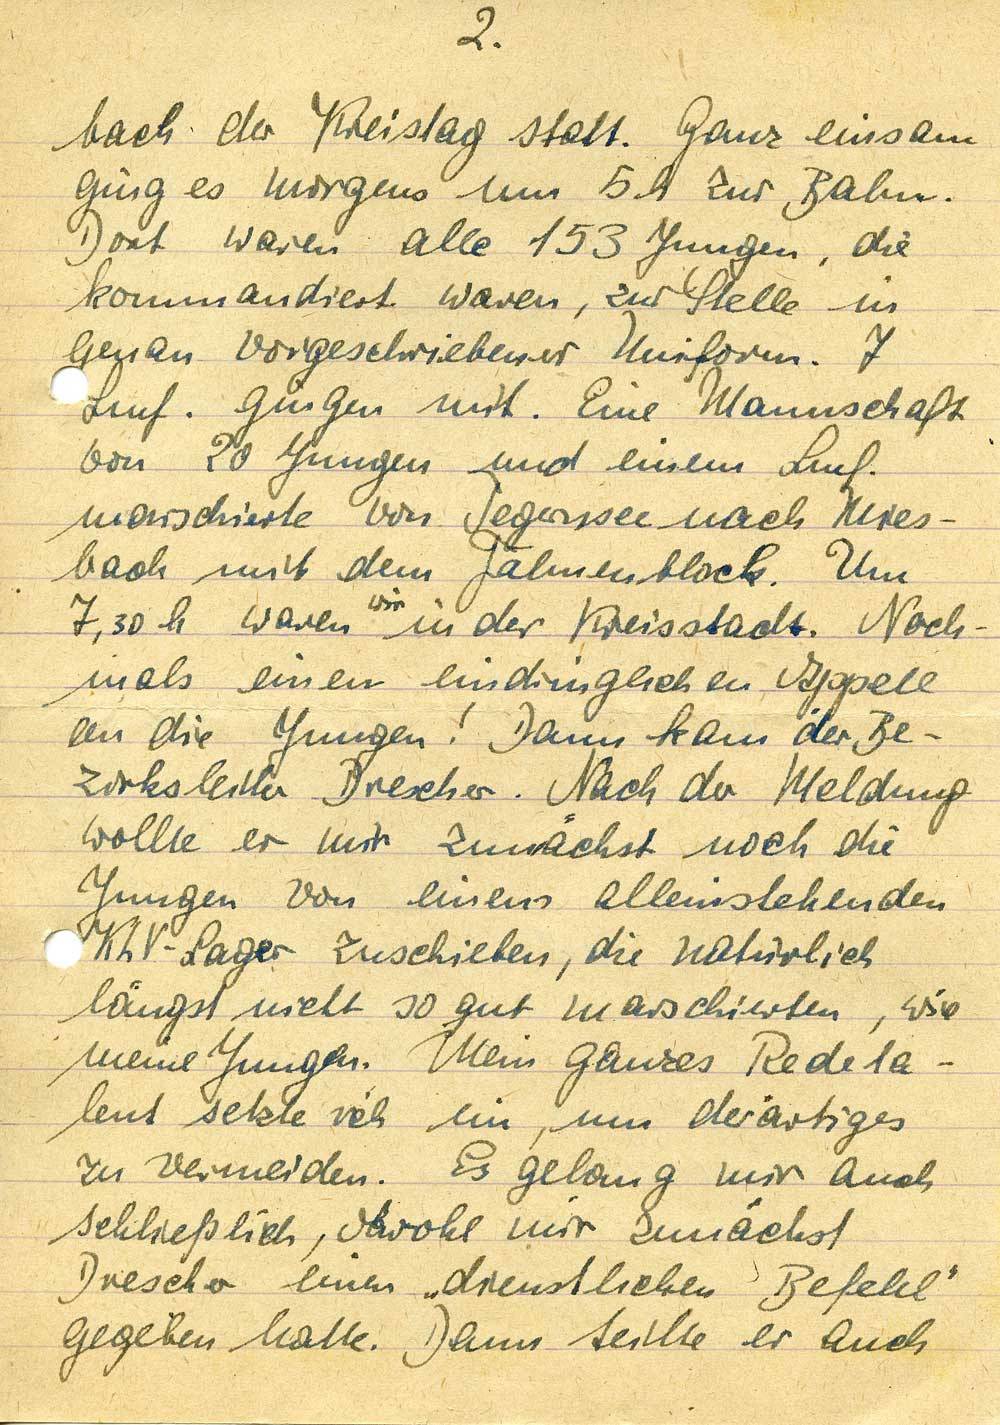 2.
bach der Kreistag statt. Ganz einsam
ging es morgens um 5 h zur Bahn.
Dort waren alle 153 Jungen, die
kommandiert waren, zur Stelle in
genau vorgeschriebener Uniform. 7
Lmf. gingen mit. Eine Mannschaft
von 20 Jungen und einem Lmf.
marschierte von Tegernsee nach Mies-
bach mit dem Fahnenblock. Um
7,30 h waren wir in der Kreisstadt. Noch-
mals einen eindringlichen Appell
an die Jungen! Dann kam der Be-
zirksleiter Drescher. Nach der Meldung
wollte er mir zunächst noch die
Jungen von einem alleinstehenden
KLV-Lager zuschieben, die natürlich
längst nicht so gut marschierten, wie
meine Jungen. Mein ganzes Redeta-
lent setzte ich ein, um derartiges
zu vermeiden. Es gelang mir auch
schließlich, obwohl mir zunächst
Drescher einen „dienstlichen Befehl"
gegeben hatte. Dann teilte er auch